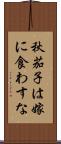 秋茄子は嫁
に食わすな